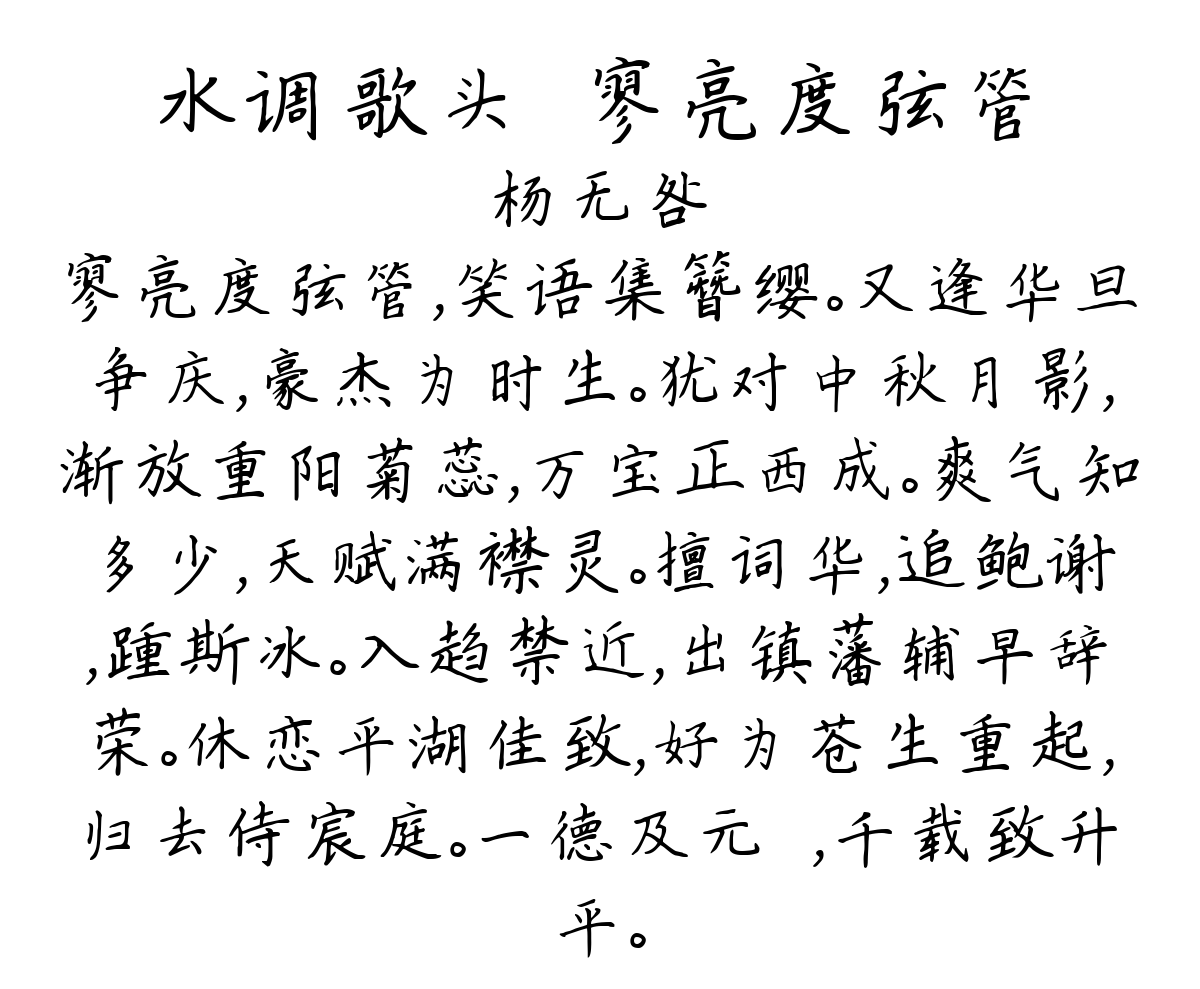 水调歌头 寥亮度弦管
杨无咎
寥亮度弦管,笑语集簪缨。又逢华旦
争庆,豪杰为时生。犹对中秋月影,
渐放重阳菊蕊,万宝正西成。爽气知
多少,天赋满襟灵。擅词华,追鲍谢
,踵斯冰。入趋禁近,出镇藩辅早辞
荣。休恋平湖佳致,好为苍生重起,
归去侍宸庭。一德及元 ,千载致升
平。